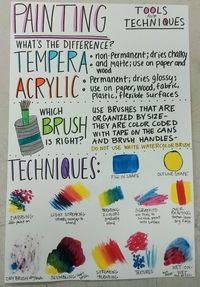 PAINTING
TOOLS
AND
TECHNIQUES
WHAT'S THE DIFFERENCE?
TEMPERA: non-permanent; dries chalky
and matte; use on paper and
wood
ACRYLIC: Permanent; dries glossy;
use on paper, wood, fabric,
plastic, flexible surfaces
WHICH
BRUSH
IS RIGHT?
USE BRUSHES THAT
ARE ORGANIZED BY SIZE-
THEY ARE COLOR CODED
WITH TAPE ON THE CANS
AND BRUSH HANDLES-
DO NOT USE WHITE WATERCOLOR BRUSH
TECHNIQUES:
FILL IN SHAPE
OUTLINE SHAPE
DABBING
LIGHT STREAKING
BLENDING
2 COLORS
SGRAFFITO
OVER-
PAINTING
DRYBRUSH
SCUMBLING
STREAKING
BLENDING
TEXTURES
WET-ON-